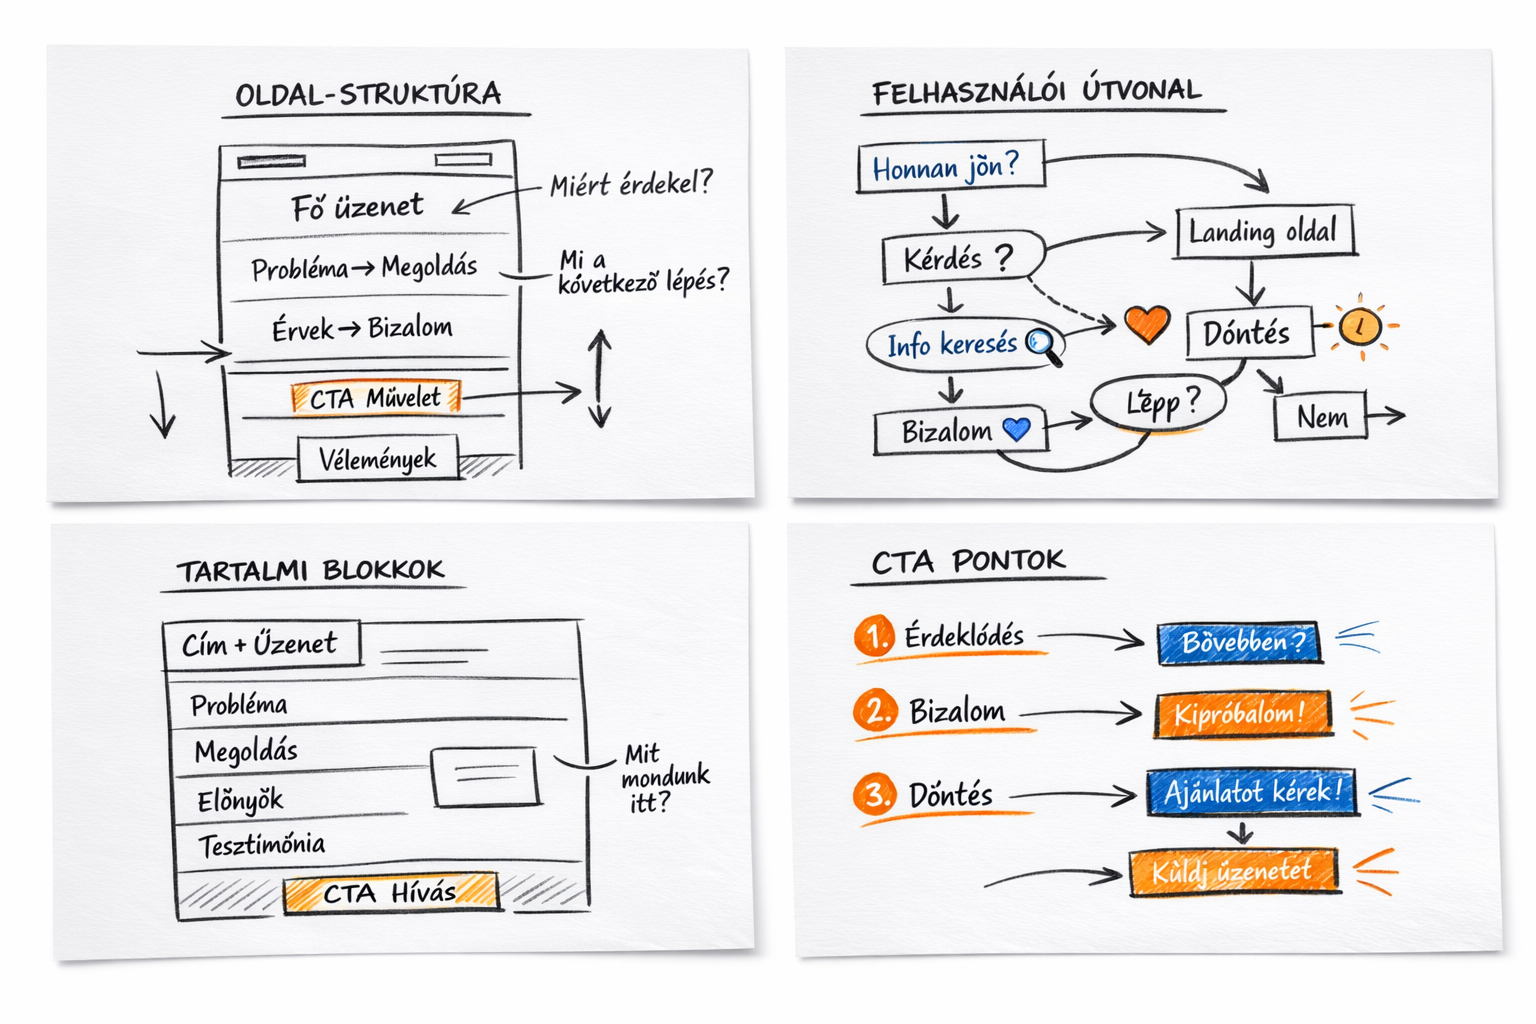 OLDAL-STRUKTÚRA
Fő üzenet
Miért érdekel?
Probléma → Megoldás
Mi a
következő lépés?
Érvek → Bizalom
CTA Művelet
Vélemények
FELHASZNÁLÓI ÚTVONAL
Honnan jön?
Landing oldal
Kérdés ?
Info keresés
Döntés
Bizalom
Lépp?
Nem
TARTALMI BLOKKOK
Cím + Űzenet
Probléma
Megoldás
Előnyök
Mit
mondunk
itt?
Tesztimőnia
CTA Hívás
CTA PONTOK
1. Érdeklődés
Bővebben?
2. Bizalom
Kipróbalom!
3. Döntés
Ajánlatot kérek!
Küldj üzenetet